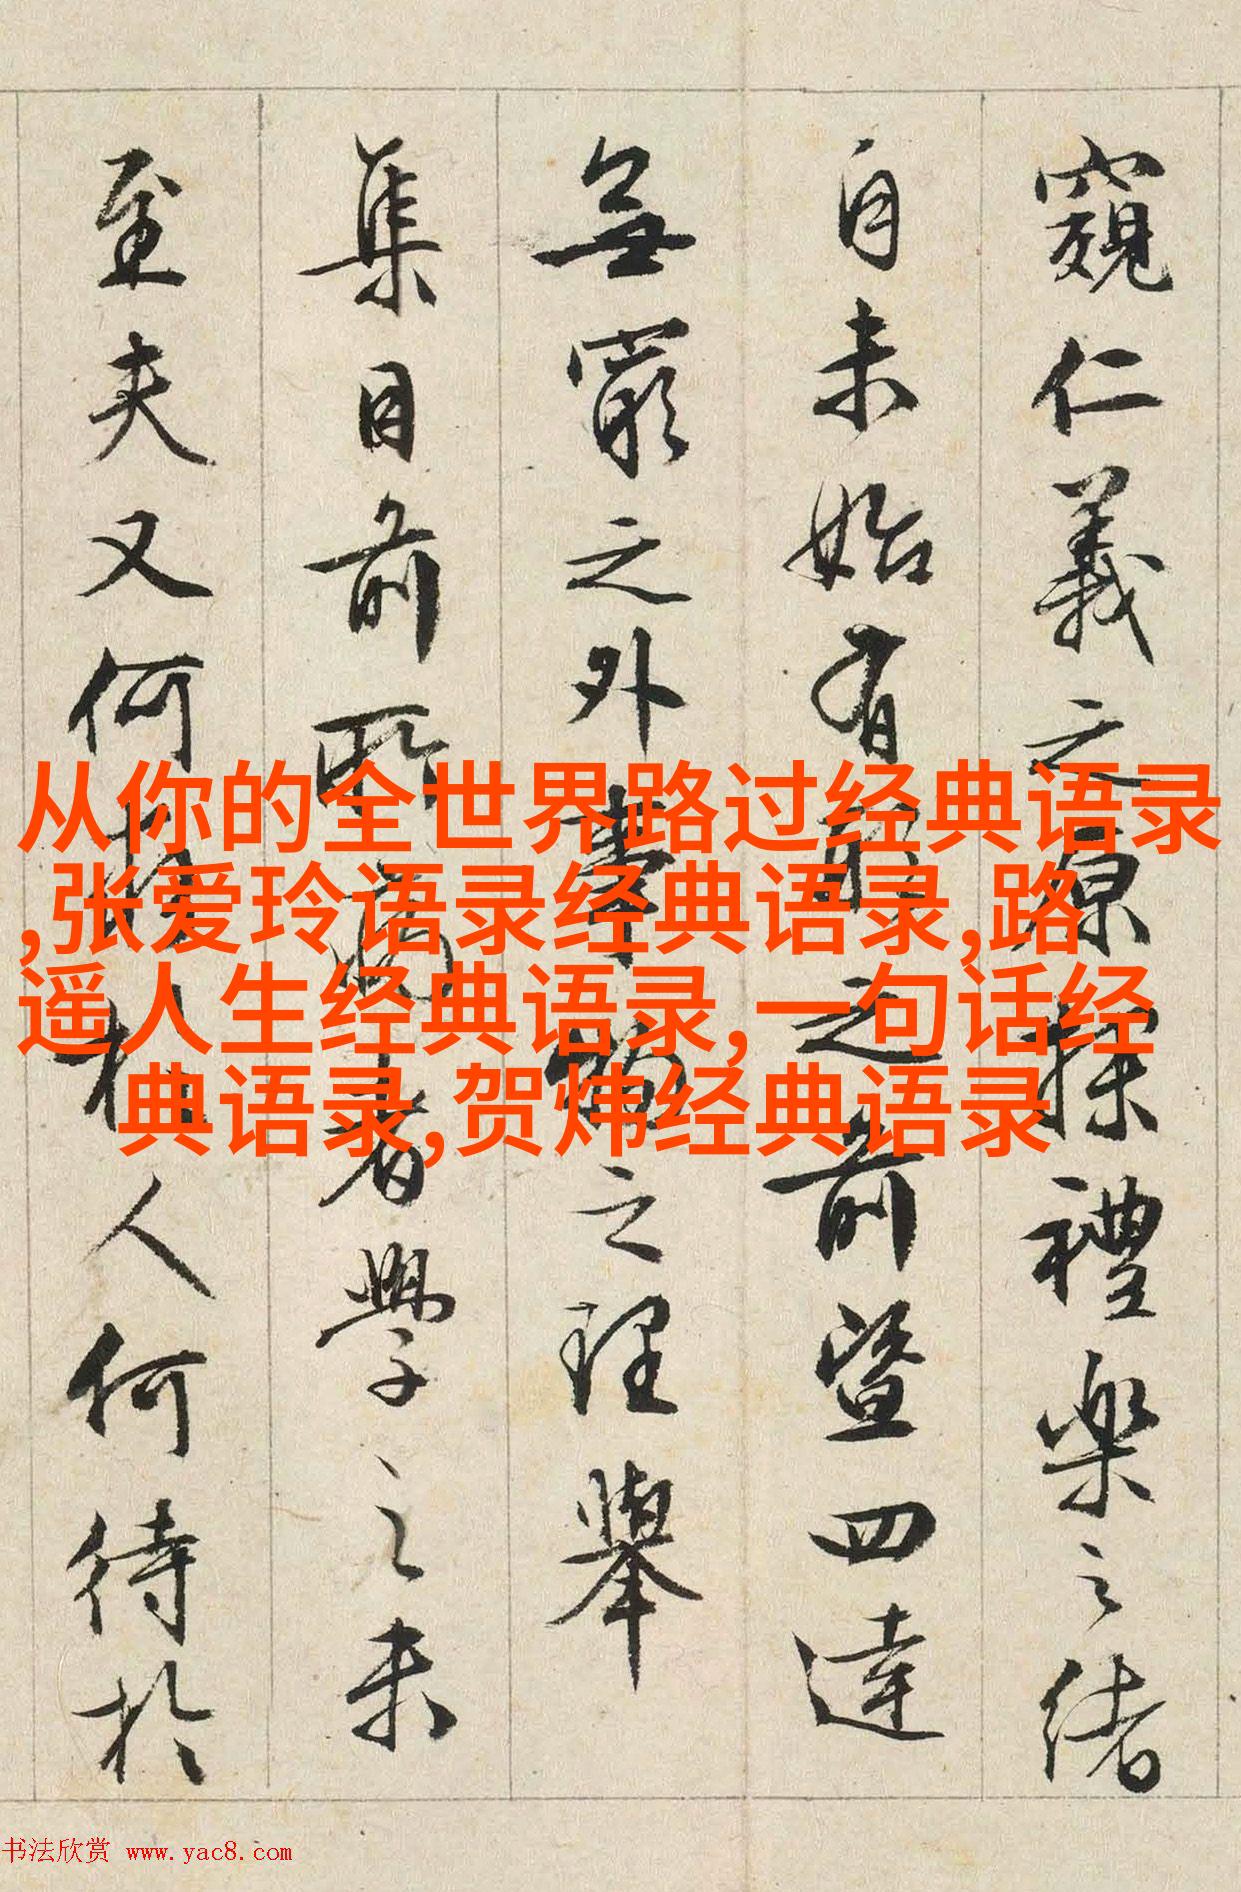 窺仁義之原探禮樂之緒
自未始有前之前暨四達
無窮之外事爲之理舉
集目前所病者學之未
至夫又何求於人何待於
从你的全世界路过经典语录
,张爱玲语录经典语录,路
遥人生经典语录,一句话经
典语录,贺炜经典语录
书法欣赏 www.yac8.com